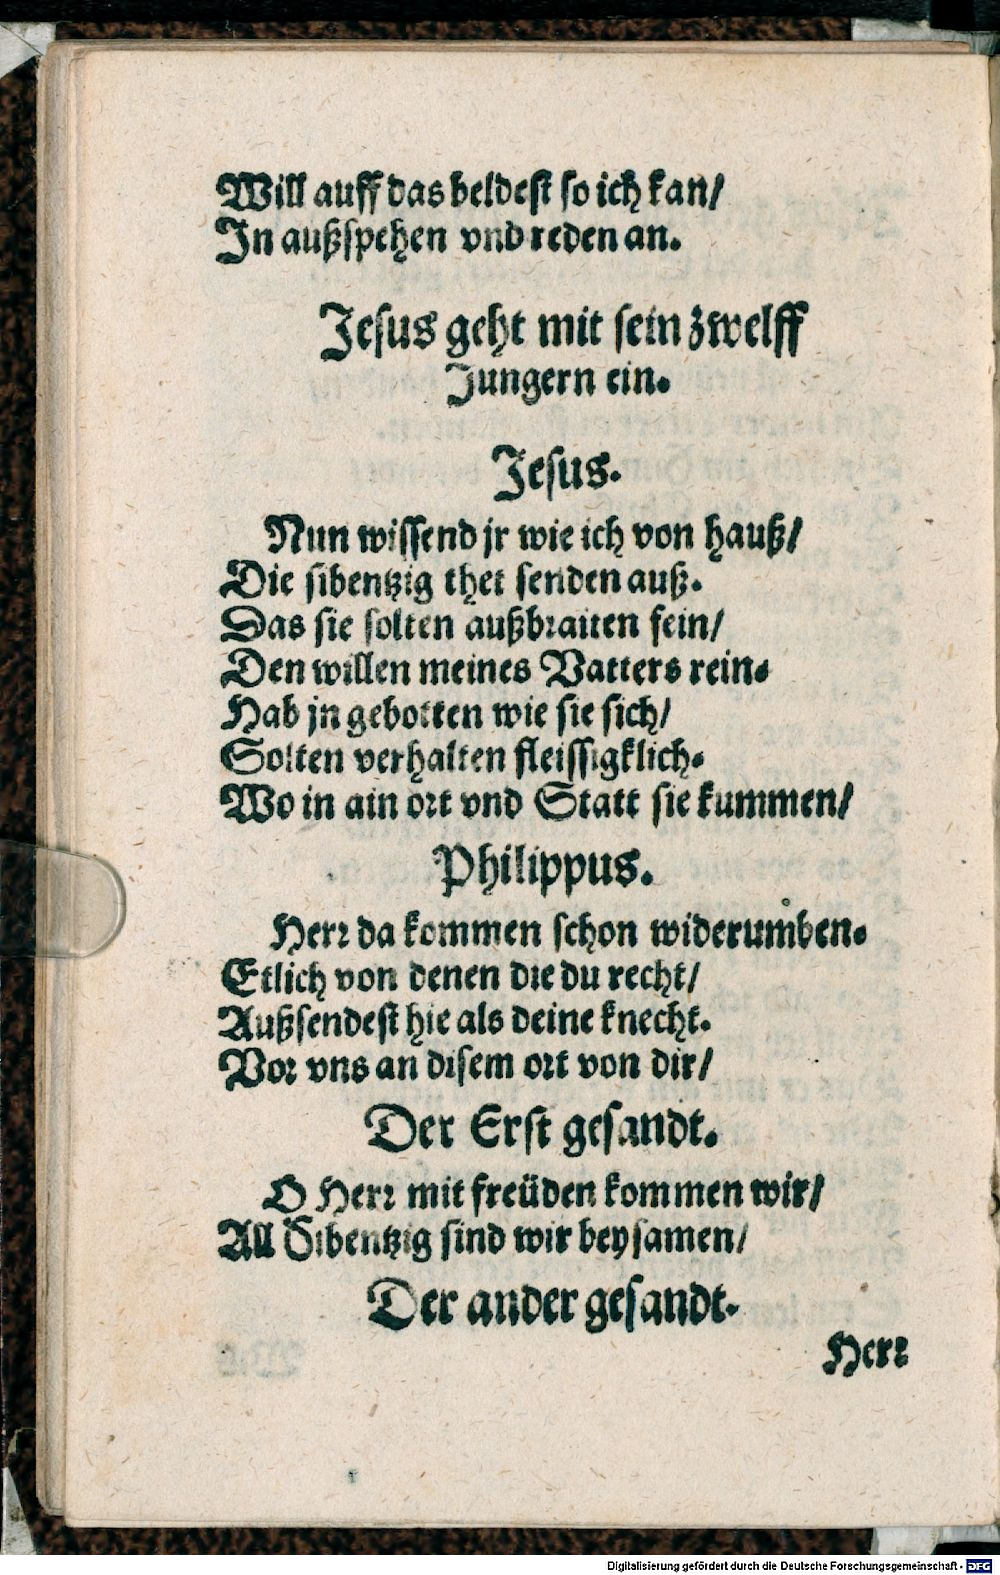 Will auff das beldest so ich kan/
In außspehen vnd reden an.
Jesus geht mit sein zwelff
Jungern ein.
Jesus.
Nun wissend jr wie ich von hauß/
Die sibentzig thet senden auß.
Das sie solten außbraiten fein/
Den willen meines Vatters rein.
Hab jn gebotten wie sie sich/
Solten verhalten fleissigklich.
Wo in ain ort vnd Statt sie kummen/
Philippus.
Herr da kommen schon widerumͤben.
Etlich von denen die du recht/
Außsendest hie als deine knecht.
Vor vns an disem ort von dir/
Der Erst gesandt.
O Herr mit freüden kommen wir/
All Sibentzig sind wir beysamen/
Der ander gesandt.
Herr
Digitalisierung gefördert durch die Deutsche Forschungsgemeinschaft - DFG